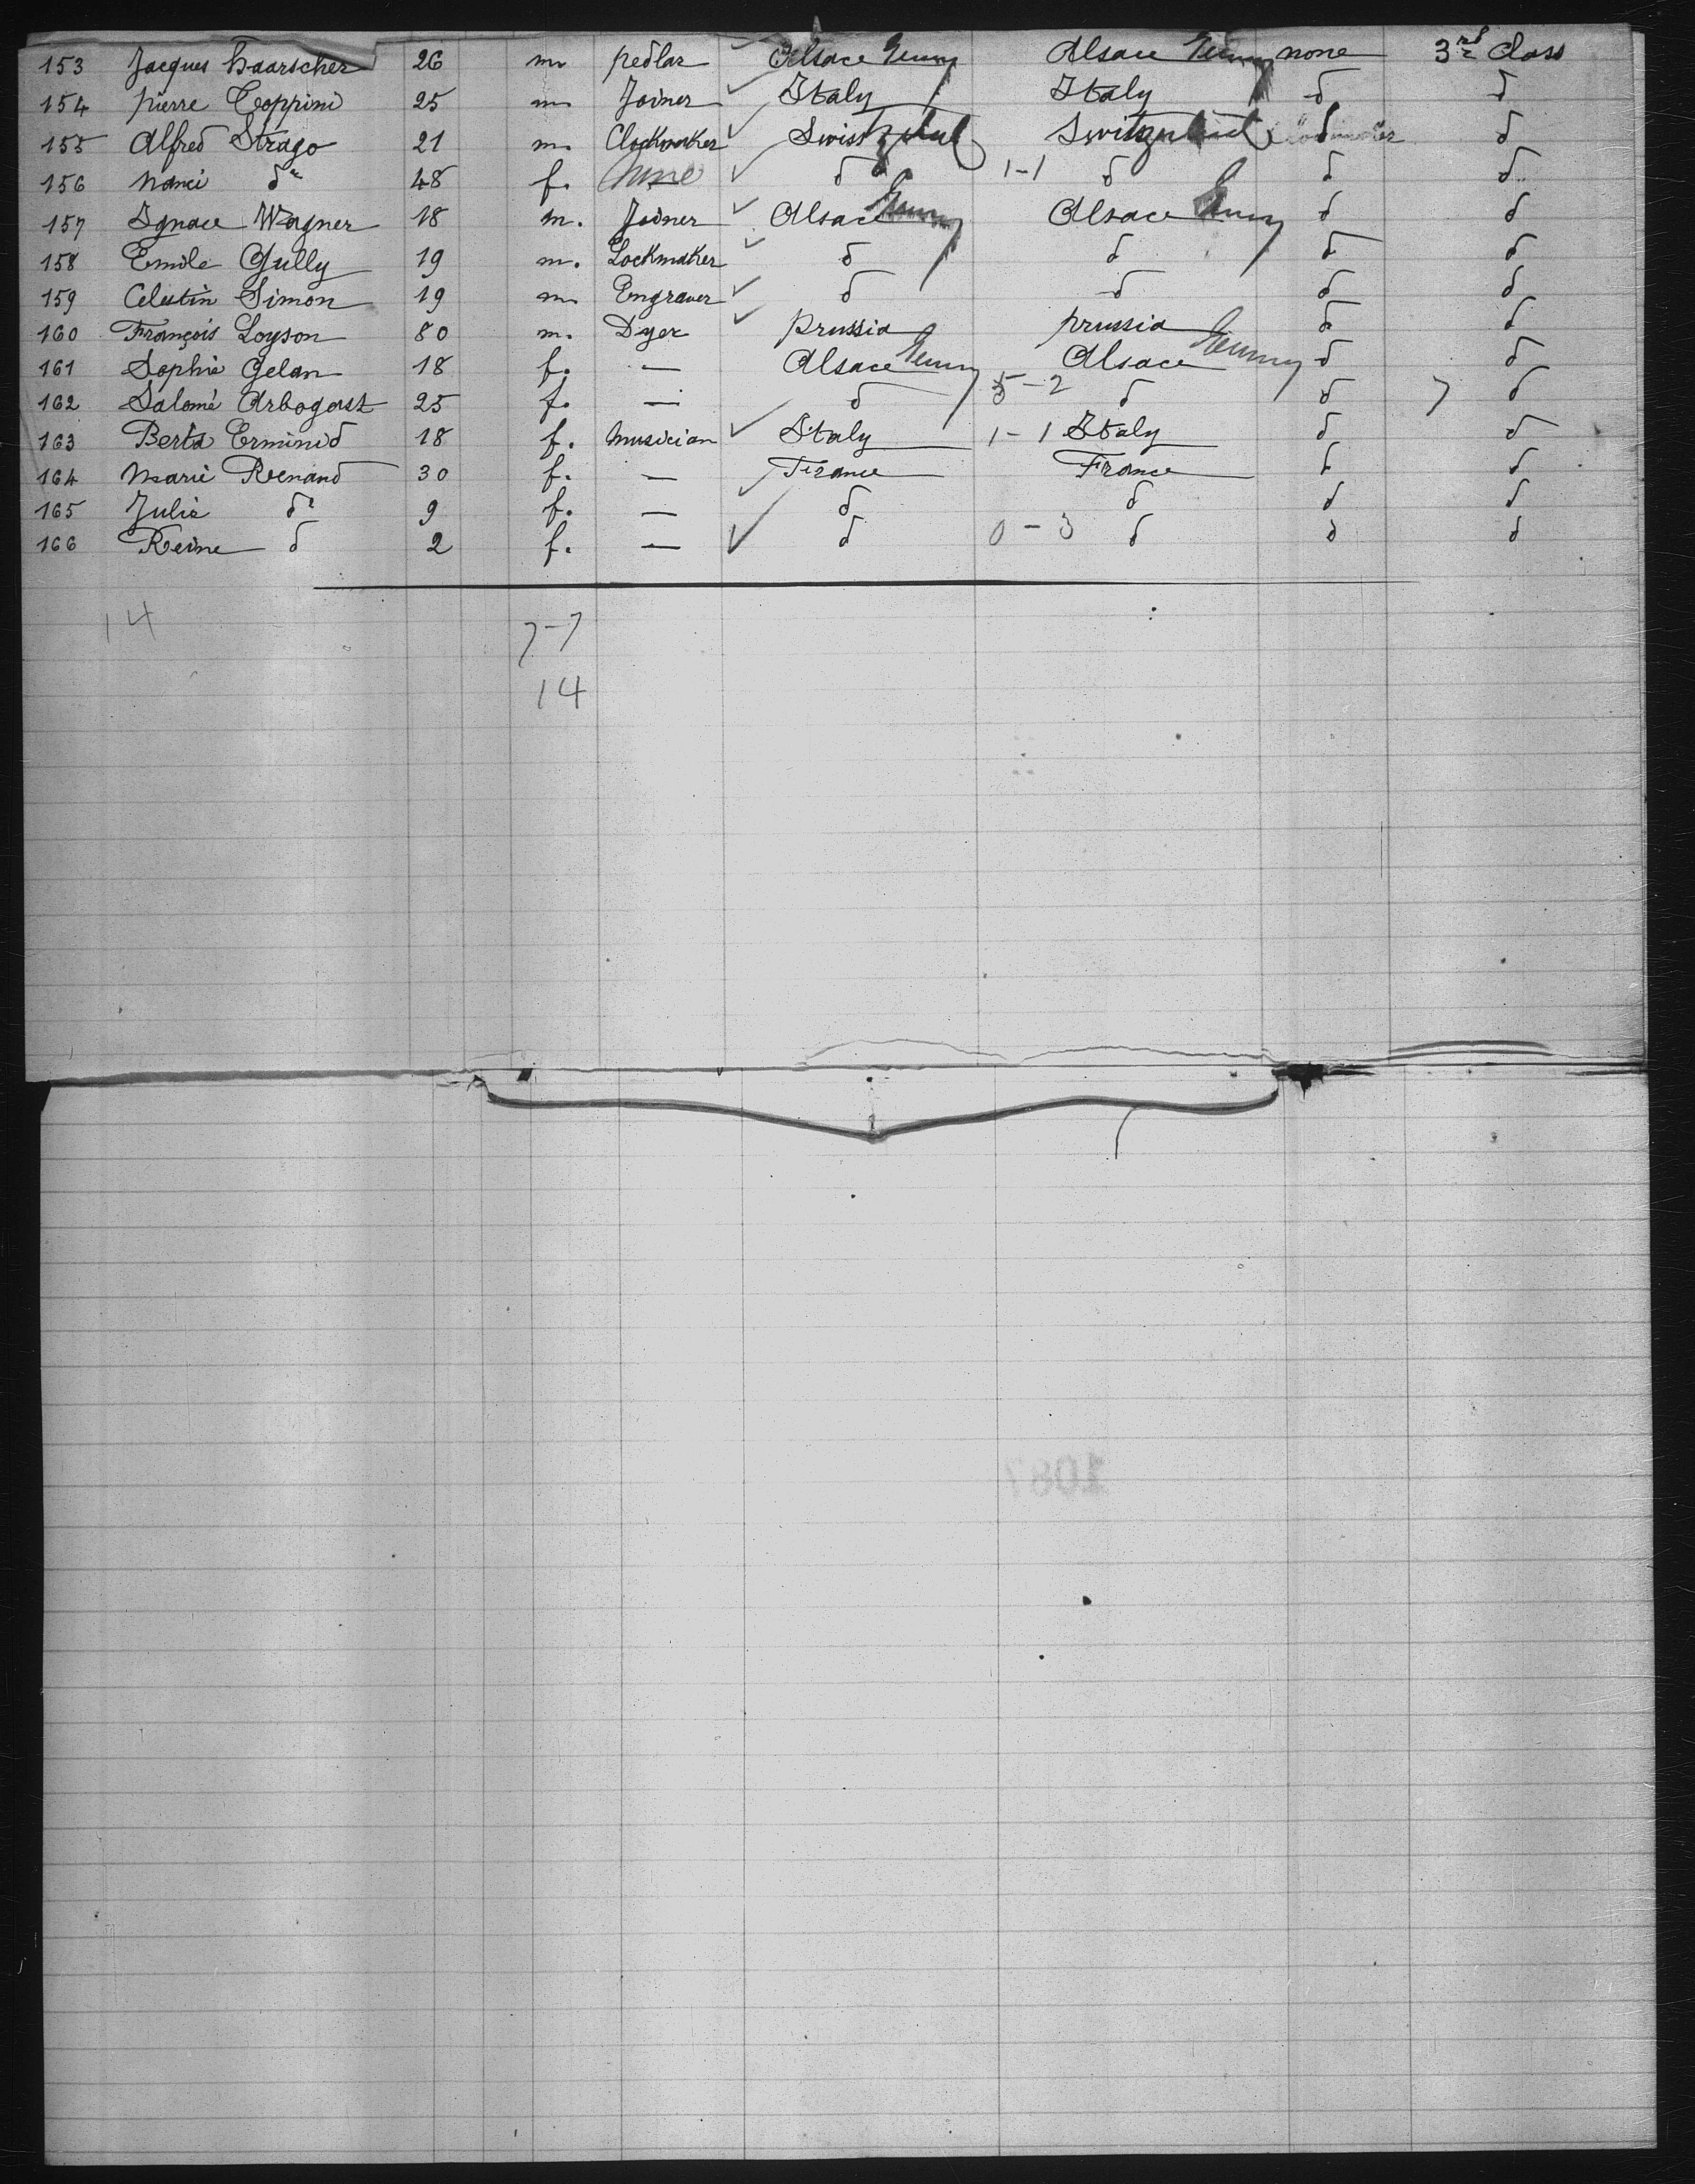 153 Jacques Haarscher 26 m. pedlar Alsace Germy Alsace Germy none 3rd Class
154 Pierre Coppini 25 m. Joiner Italy Italy d d
155 Alfred Strago 21 m. Clockmaker Switzerland Switzerland d d
156 Nanci do 48 f. None d 1-1 d d d
157 Ignace Wagner 18 m. Joiner Alsace Germy Alsace Germy d d
158 Emile Gully 19 m. Lockmaker d d d d
159 Celestin Simon 19 m. Engraver d d d d
160 François Loyson 80 m. Dyer Prussia prussia d d
161 Sophie Gelan 18 f. — Alsace Germy Alsace Germy d d
162 Salomé Arbogast 25 f. — d 5-2 d d 7 d
163 Berta Erminid 18 f. musician Italy 1-1 Italy d d
164 Marie Renand 30 f. — France France d d
165 Julie do 9 f. — d d d d
166 Reine d 2 f. — d 0-3 d d d
14 7-7
14